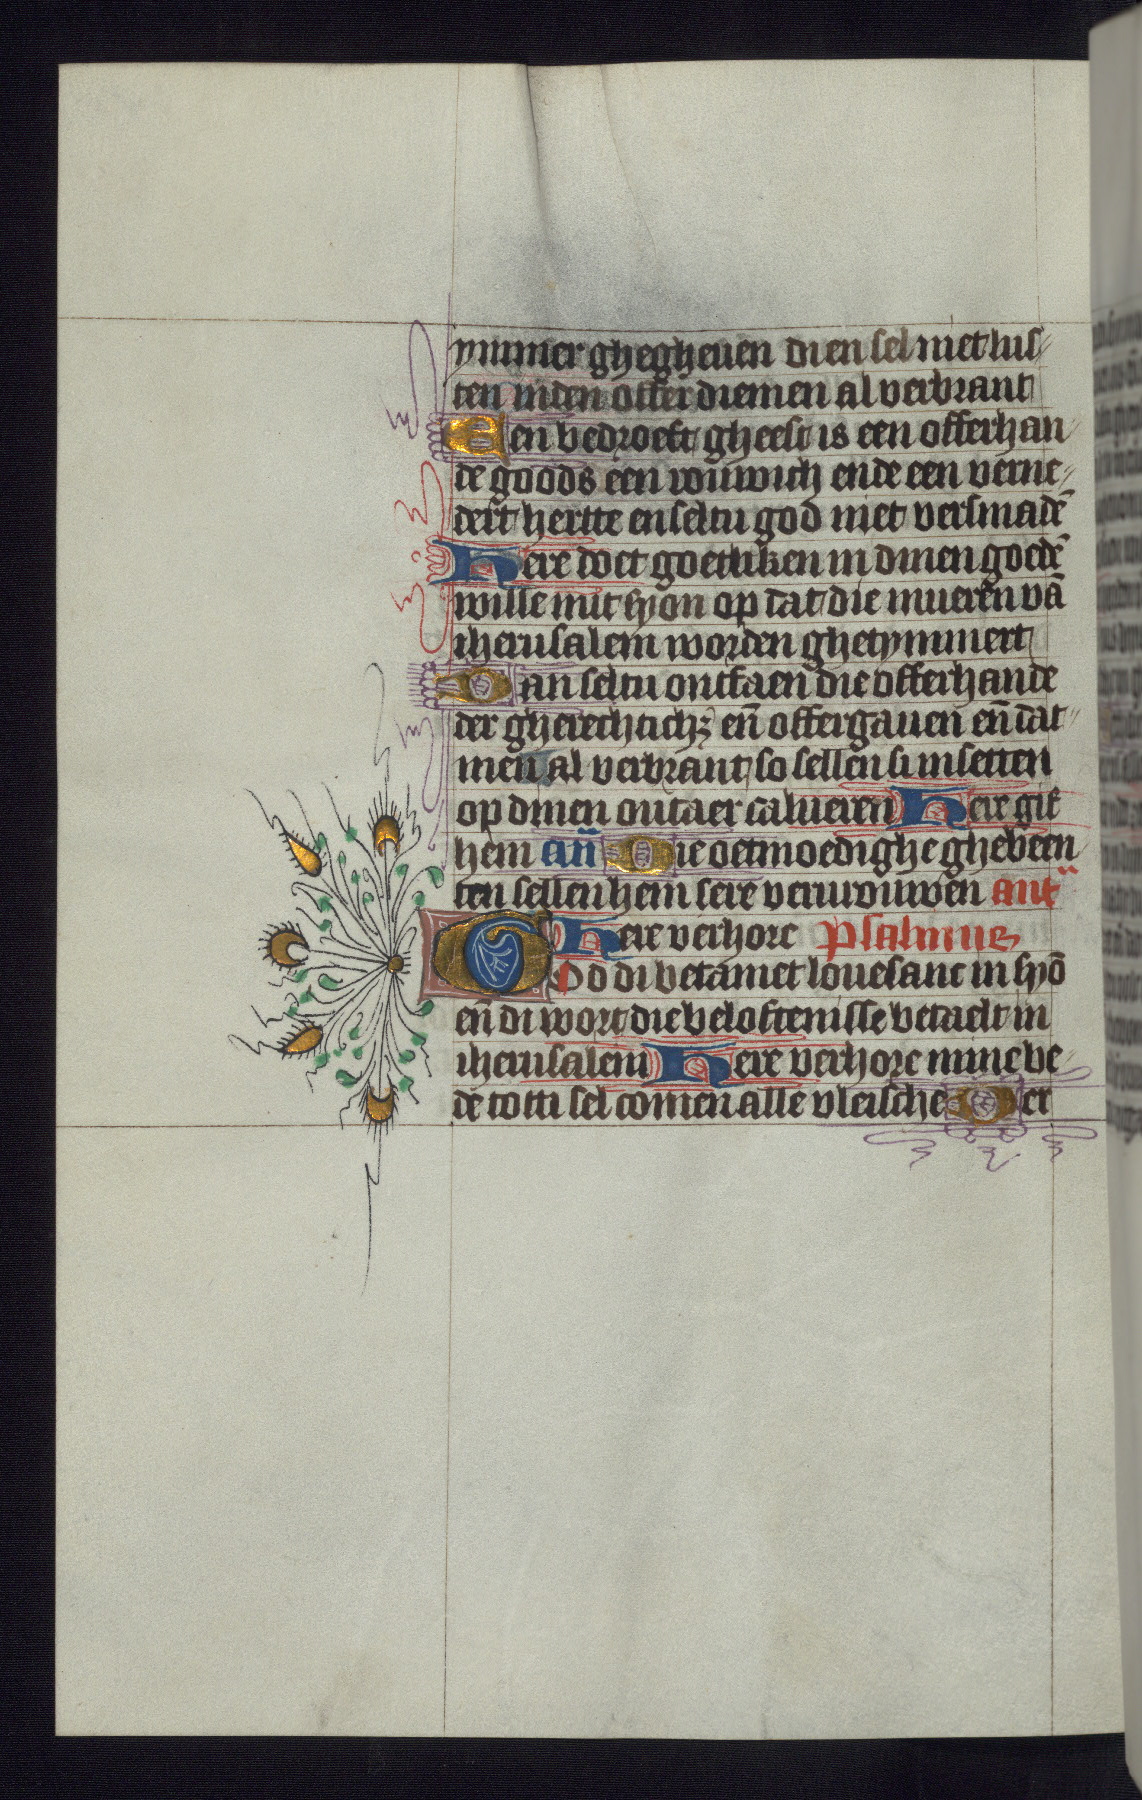 ymmer ghegheuen di en sel niet lus⸗
ten in den offer diemen al verbrant
Een bedroeft gheest is een offerhan⸗
de goods een ruwich ende een verne⸗
dert hertte en seltu god niet versmadē
Here doet goetliken in dinen goedē
wille mit syon op dat die mueren vā
iherusalem worden ghetymmert
Dan seltu ontfaen die offerhande
der gherechtichz en̄ offergauen en̄ dat⸗
men al verbrant so sellen si insetten
op dinen outaer calueren Here gif
hem an̄ Die oetmoedighe ghebeen
ten sellen hem sere verurouwen ant
Here verhore Psalmus
God di betamet louesanc in syō
en̄ di wort die beloftenisse betaelt in
iherusalem Here verhore mine be⸗
de totti sel comen alle vleische er